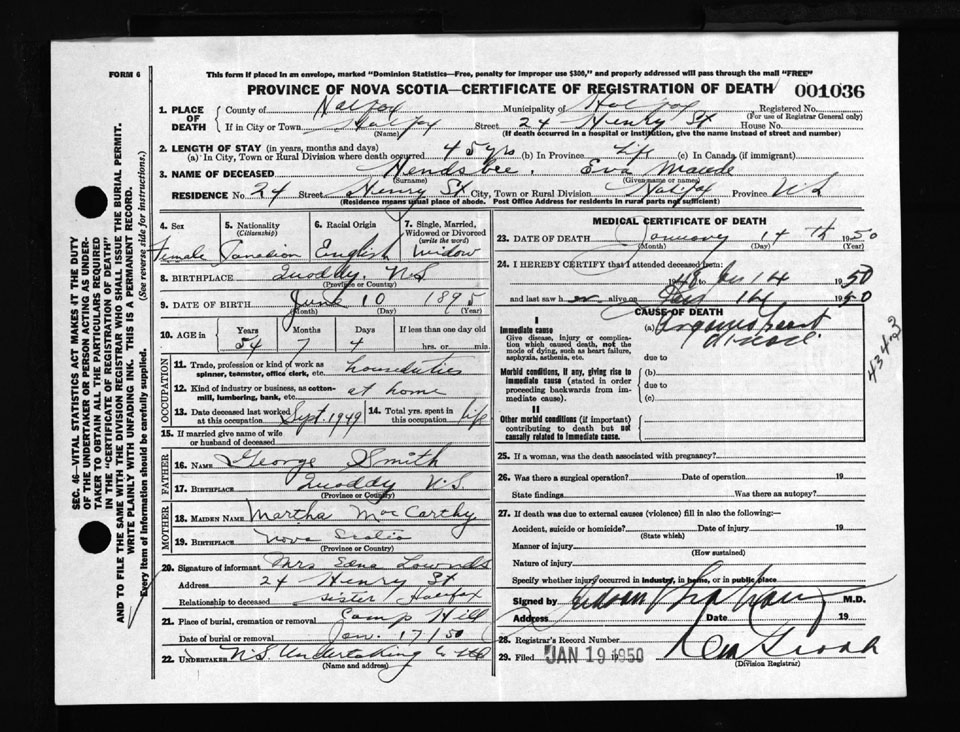 FORM 6
This form if placed in an envelope, marked "Dominion Statistics—Free, penalty for improper use $300," and properly addressed will pass through the mail "FREE"
PROVINCE OF NOVA SCOTIA—CERTIFICATE OF REGISTRATION OF DEATH 001036
1. PLACE OF DEATH
County of Halifax Municipality of Halifax Registered No.
(For use of Registrar General only)
If in City or Town Halifax Street 24 Henry St House No.
(Name) (If death occurred in a hospital or institution, give the name instead of street and number)
2. LENGTH OF STAY (in years, months and days)
(a) In City, Town or Rural Division where death occurred 45 yrs (b) In Province Life (c) In Canada (if immigrant)
3. NAME OF DECEASED Hendsbee, Eva Maude
(Surname) (Given name or names)
RESIDENCE No. 24 Street Henry St City, Town or Rural Division Halifax Province N S
(Residence means usual place of abode. Post Office Address for residents in rural parts not sufficient)
4. Sex 5. Nationality (Citizenship) 6. Racial Origin 7. Single, Married, Widowed or Divorced (write the word)
Female Canadian English Widow
8. BIRTHPLACE Quoddy, N S
(Province or Country)
9. DATE OF BIRTH June 10 1895
(Month) (Day) (Year)
10. AGE in Years Months Days If less than one day old
54 7 4 hrs. or min.
OCCUPATION
11. Trade, profession or kind of work as spinner, teamster, office clerk, etc. houseduties
12. Kind of industry or business, as cotton-mill, lumbering, bank, etc. at home
13. Date deceased last worked at this occupation Sept. 1949 14. Total yrs. spent in this occupation life
15. If married give name of wife or husband of deceased
FATHER
16. NAME George Smith
17. BIRTHPLACE Quoddy N.S.
(Province or Country)
MOTHER
18. MAIDEN NAME Martha MacCarthy
19. BIRTHPLACE Nova Scotia
(Province or Country)
20. Signature of informant Mrs Edna Lownds
Address 24 Henry St
Relationship to deceased sister Halifax
21. Place of burial, cremation or removal Camp Hill
Date of burial or removal Jan. 17/50
22. UNDERTAKER N.S. Undertaking Co Ltd
(Name and address)
MEDICAL CERTIFICATE OF DEATH
23. DATE OF DEATH January 14 th 1950
(Month) (Day)
24. I HEREBY CERTIFY that I attended deceased from:
48 14 1950
and last saw h er alive on Jan 14 1950
CAUSE OF DEATH
I
Immediate cause (a) Organic heart disease
Give disease, injury or complication which caused death, not the mode of dying, such as heart failure, asphyxia, asthenia, etc.
due to
Morbid conditions, if any, giving rise to immediate cause (stated in order proceeding backwards from immediate cause).
(b)
due to
(c)
II
Other morbid conditions (if important) contributing to death but not causally related to immediate cause.
434-2
25. If a woman, was the death associated with pregnancy?
26. Was there a surgical operation? Date of operation 19
State findings Was there an autopsy?
27. If death was due to external causes (violence) fill in also the following:—
Accident, suicide or homicide? Date of injury 19
(State which)
Manner of injury
(How sustained)
Nature of injury
Specify whether injury occurred in industry, in home, or in public place
Signed by M.D.
Address Date 19
28. Registrar's Record Number
29. Filed JAN 19 1950
(Division Registrar)
SEC. 46—VITAL STATISTICS ACT MAKES IT THE DUTY
OF THE UNDERTAKER OR PERSON ACTING AS UNDER-
TAKER TO OBTAIN ALL THE PARTICULARS REQUIRED
IN THE "CERTIFICATE OF REGISTRATION OF DEATH"
AND TO FILE THE SAME WITH THE DIVISION REGISTRAR WHO SHALL ISSUE THE BURIAL PERMIT.
WRITE PLAINLY WITH UNFADING INK. THIS IS A PERMANENT RECORD.
Every item of information should be carefully supplied. (See reverse side for instructions.)